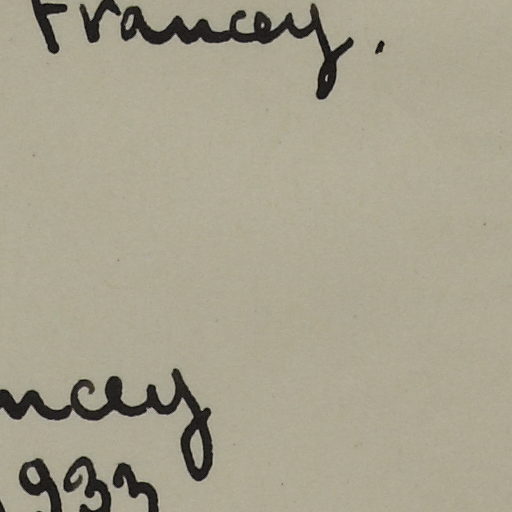 Francey.
ncey
1933